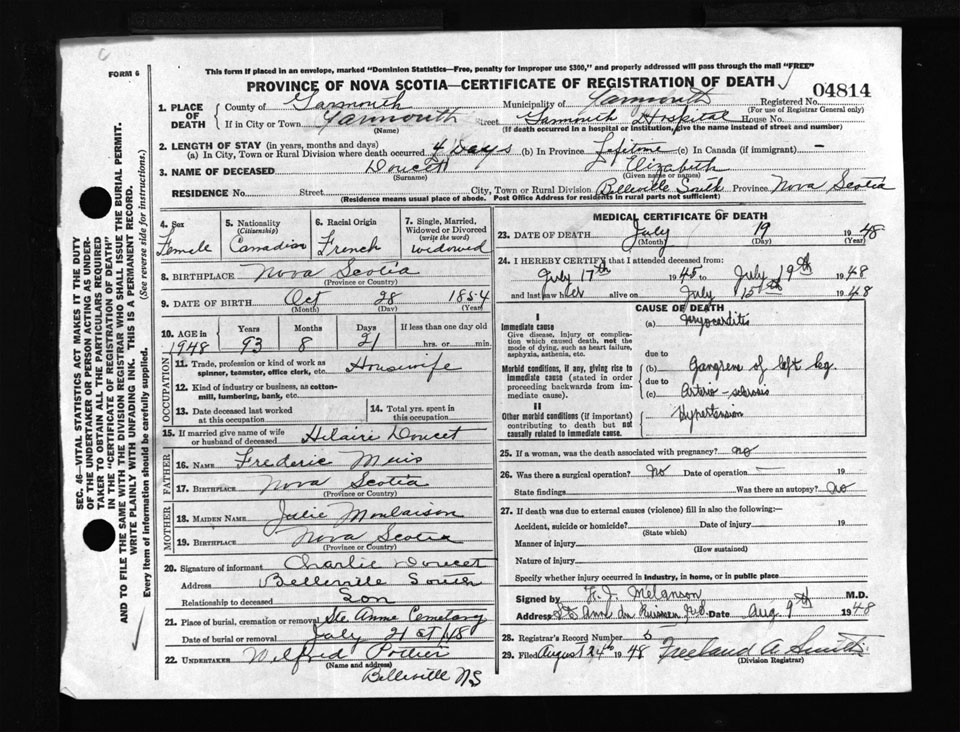 C
FORM 6
This form if placed in an envelope, marked "Dominion Statistics—Free, penalty for improper use $300," and properly addressed will pass through the mail "FREE"
PROVINCE OF NOVA SCOTIA—CERTIFICATE OF REGISTRATION OF DEATH
04814
1. PLACE OF DEATH
County of Yarmouth Municipality of Yarmouth Registered No.
(For use of Registrar General only)
If in City or Town Yarmouth Street Yarmouth Hospital House No.
(Name) (If death occurred in a hospital or institution, give the name instead of street and number)
2. LENGTH OF STAY (in years, months and days)
(a) In City, Town or Rural Division where death occurred 4 Days (b) In Province Lifetime (c) In Canada (if immigrant) —
3. NAME OF DECEASED Doucett Elizabeth
(Surname) (Given name or names)
RESIDENCE No. Street City, Town or Rural Division Belleville South Province Nova Scotia
(Residence means usual place of abode. Post Office Address for residents in rural parts not sufficient)
4. Sex Femele
5. Nationality (Citizenship) Canadian
6. Racial Origin French
7. Single, Married, Widowed or Divorced (write the word) widowed
8. BIRTHPLACE Nova Scotia
(Province or Country)
9. DATE OF BIRTH Oct 28 1854
(Month) (Day) (Year)
10. AGE in 1948 Years 93 Months 8 Days 21 If less than one day old
hrs. or min.
OCCUPATION
11. Trade, profession or kind of work as spinner, teamster, office clerk, etc. Housewife
12. Kind of industry or business, as cotton-mill, lumbering, bank, etc.
13. Date deceased last worked at this occupation
14. Total yrs. spent in this occupation
15. If married give name of wife or husband of deceased Hilaire Doucet
FATHER
16. NAME Frederic Muis
17. BIRTHPLACE Nova Scotia
(Province or Country)
MOTHER
18. MAIDEN NAME Julie Moulaison
19. BIRTHPLACE Nova Scotia
(Province or Country)
20. Signature of informant Charlie Doucet
Address Belleville South
Relationship to deceased Son
21. Place of burial, cremation or removal Ste Anne Cemetary
Date of burial or removal July 21 st /48
22. UNDERTAKER Wilfred Pottier
(Name and address)
Belleville NS
MEDICAL CERTIFICATE OF DEATH
23. DATE OF DEATH July 19 1948
(Month) (Day) (Year)
24. I HEREBY CERTIFY that I attended deceased from:
July 17th 1945 to July 19th 1948
and last saw her alive on July 15th 1948
CAUSE OF DEATH
I
Immediate cause
Give disease, injury or complication which caused death, not the mode of dying, such as heart failure, asphyxia, asthenia, etc.
(a) Myocarditis
due to
Morbid conditions, if any, giving rise to immediate cause (stated in order proceeding backwards from immediate cause).
(b) Gangrene of left leg
due to
(c) Arterio-sclerosis
II
Other morbid conditions (if important) contributing to death but not causally related to immediate cause.
Hypertension
25. If a woman, was the death associated with pregnancy? no
26. Was there a surgical operation? No Date of operation — 19
State findings Was there an autopsy? no
27. If death was due to external causes (violence) fill in also the following:—
Accident, suicide or homicide? Date of injury 19
(State which)
Manner of injury
(How sustained)
Nature of injury
Specify whether injury occurred in industry, in home, or in public place
Signed by Melanson M.D.
Address Ste Anne du Ruisseau, N.S. Date Aug. 9th 1948
28. Registrar's Record Number 6
29. Filed August 24th 1948 Freeland A. Smith
(Division Registrar)
SEC. 46—VITAL STATISTICS ACT MAKES IT THE DUTY
OF THE UNDERTAKER OR PERSON ACTING AS UNDER-
TAKER TO OBTAIN ALL THE PARTICULARS REQUIRED
IN THE "CERTIFICATE OF REGISTRATION OF DEATH"
AND TO FILE THE SAME WITH THE DIVISION REGISTRAR WHO SHALL ISSUE THE BURIAL PERMIT.
WRITE PLAINLY WITH UNFADING INK. THIS IS A PERMANENT RECORD.
Every item of information should be carefully supplied. (See reverse side for instructions.)